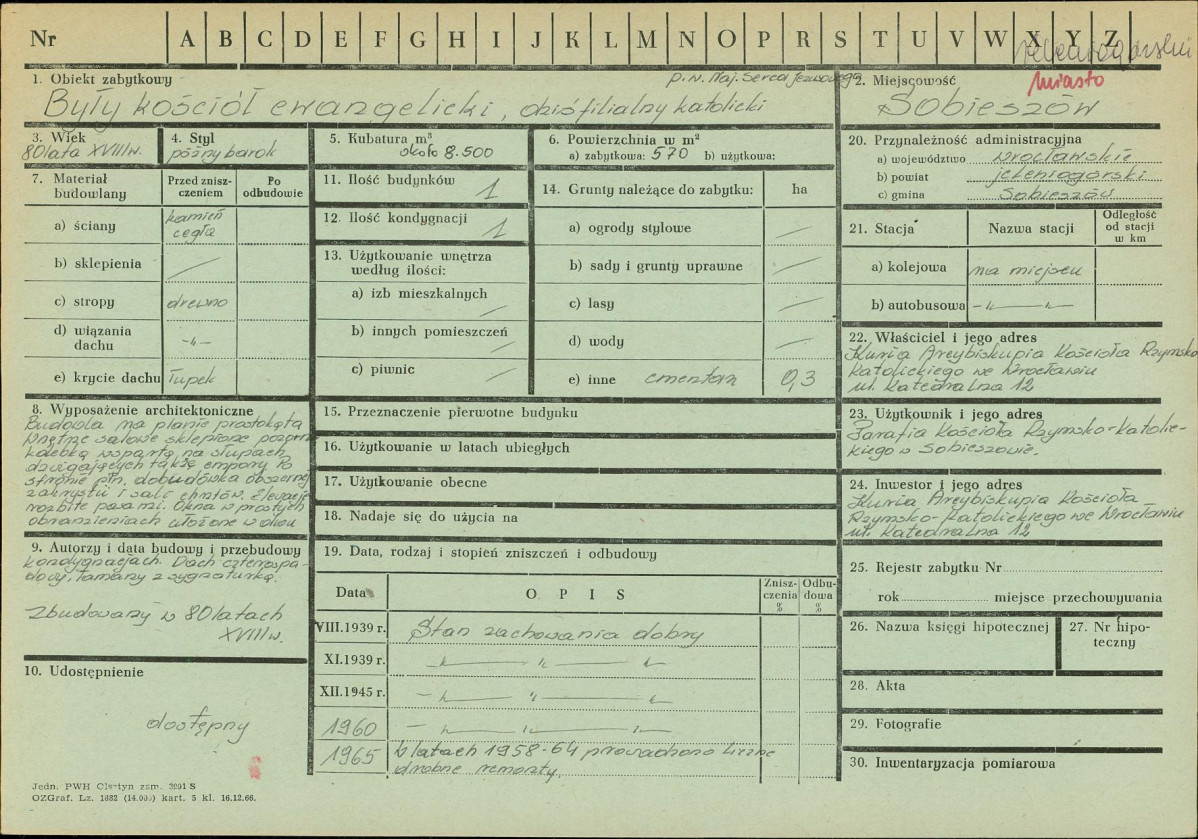 Nr A B C D E F G H I J K L M N O P R S T U V W X Y Z
jeleniogórski
miasto
1. Obiekt zabytkowy
p.w. Naj. Serca Jezusowego
Były kościół ewangelicki, dziś filialny katolicki
2. Miejscowość
Sobieszów
3. Wiek
80 lata XVIII w.
4. Styl
późny barok
5. Kubatura m³
około 8.500
6. Powierzchnia w m²
a) zabytkowa: 570 b) użytkowa:
7. Materiał budowlany
Przed zniszczeniem
Po odbudowie
a) ściany kamień cegła
b) sklepienia —
c) stropy drewno
d) wiązania dachu -"-
e) krycie dachu łupek
8. Wyposażenie architektoniczne
Budowla na planie prostokąta
Wnętrze salowe sklepione pozorną
kolebką wspartą na słupach
dźwigających także empory. Po
stronie płn. dobudówka obszernej
zakrystii i sali chrztów. Elewacje
rozbite pasami. Okna w prostych
obramieniach ułożone w dwu
9. Autorzy i data budowy i przebudowy
kondygnacjach. Dach czterospa-
dowy, łamany z sygnaturką.
Zbudowany w 80 latach
XVIII w.
10. Udostępnienie
dostępny
11. Ilość budynków 1
12. Ilość kondygnacji 1
13. Użytkowanie wnętrza
według ilości:
a) izb mieszkalnych —
b) innych pomieszczeń —
c) piwnic —
14. Grunty należące do zabytku: ha
a) ogrody stylowe —
b) sady i grunty uprawne —
c) lasy —
d) wody —
e) inne cmentarz 0,3
15. Przeznaczenie pierwotne budynku
16. Użytkowanie w latach ubiegłych
17. Użytkowanie obecne
18. Nadaje się do użycia na
19. Data, rodzaj i stopień zniszczeń i odbudowy
Data O P I S Zniszczenia % Odbudowa %
VIII.1939 r. Stan zachowania dobry
XI.1939 r. -"- -"- -"-
XII.1945 r. -"- -"- -"-
1960 -"- -"- -"-
1965 W latach 1958-64 prowadzono liczne
drobne remonty.
20. Przynależność administracyjna
a) województwo wrocławskie
b) powiat jeleniogórski
c) gmina Sobieszów
21. Stacja Nazwa stacji Odległość od stacji w km
a) kolejowa na miejscu
b) autobusowa -"- -"-
22. Właściciel i jego adres
Kuria Arcybiskupia Kościoła Rzymsko
Katolickiego we Wrocławiu
ul. Katedralna 12
23. Użytkownik i jego adres
Parafia Kościoła Rzymsko-Katolic-
kiego w Sobieszowie.
24. Inwestor i jego adres
Kuria Arcybiskupia Kościoła
Rzymsko-Katolickiego we Wrocławiu
ul. Katedralna 12
25. Rejestr zabytku Nr
rok miejsce przechowywania
26. Nazwa księgi hipotecznej
27. Nr hipoteczny
28. Akta
29. Fotografie
30. Inwentaryzacja pomiarowa
Jedn. PWH Olsztyn zam. 3991 S
OZGraf. Lz. 1882 (14.000) kart. 5 kl. 16.12.66.